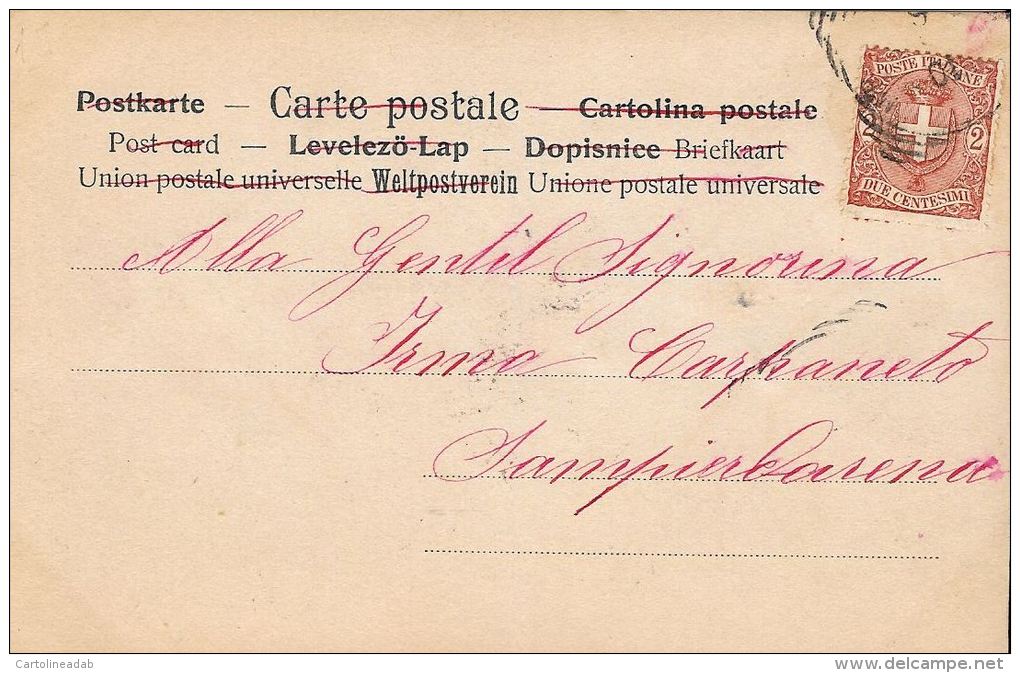 Postkarte — Carte postale — Cartolina postale
Post card — Levelezö-Lap — Dopisnice Briefkaart
Union postale universelle Weltpostverein Unione postale universale
POSTE ITALIANE
2 2
DUE CENTESIMI
Alla Gentil Signorina
Irma Carpaneto
Sampierdarena
Cartolineadab
www.delcampe.net